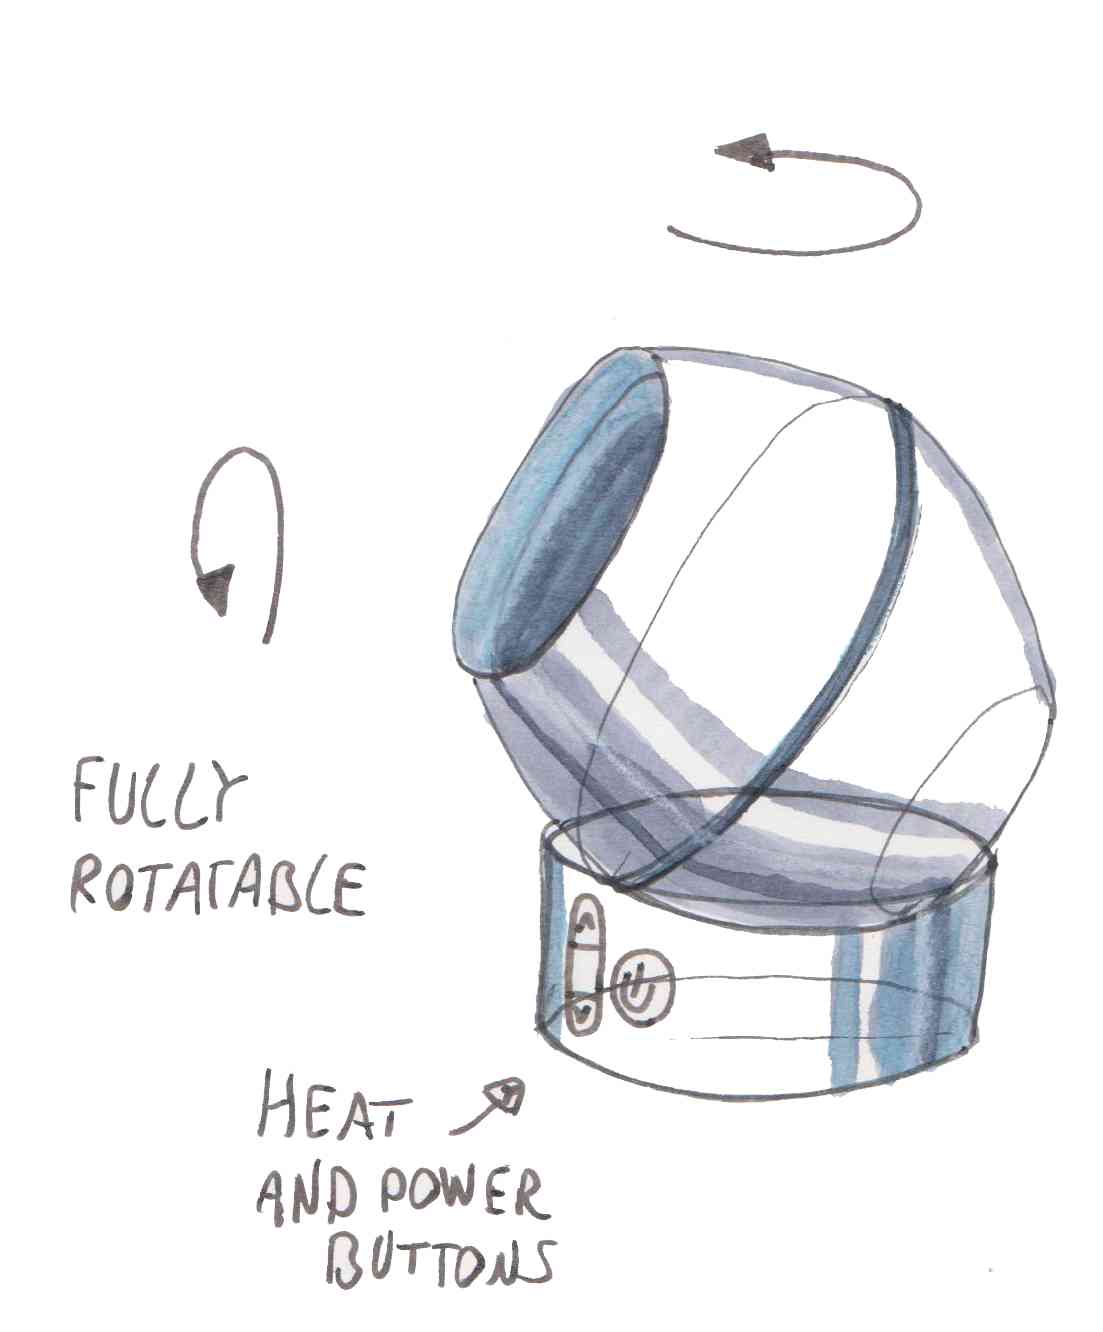 FULLY
ROTATABLE
HEAT
AND POWER
BUTTONS